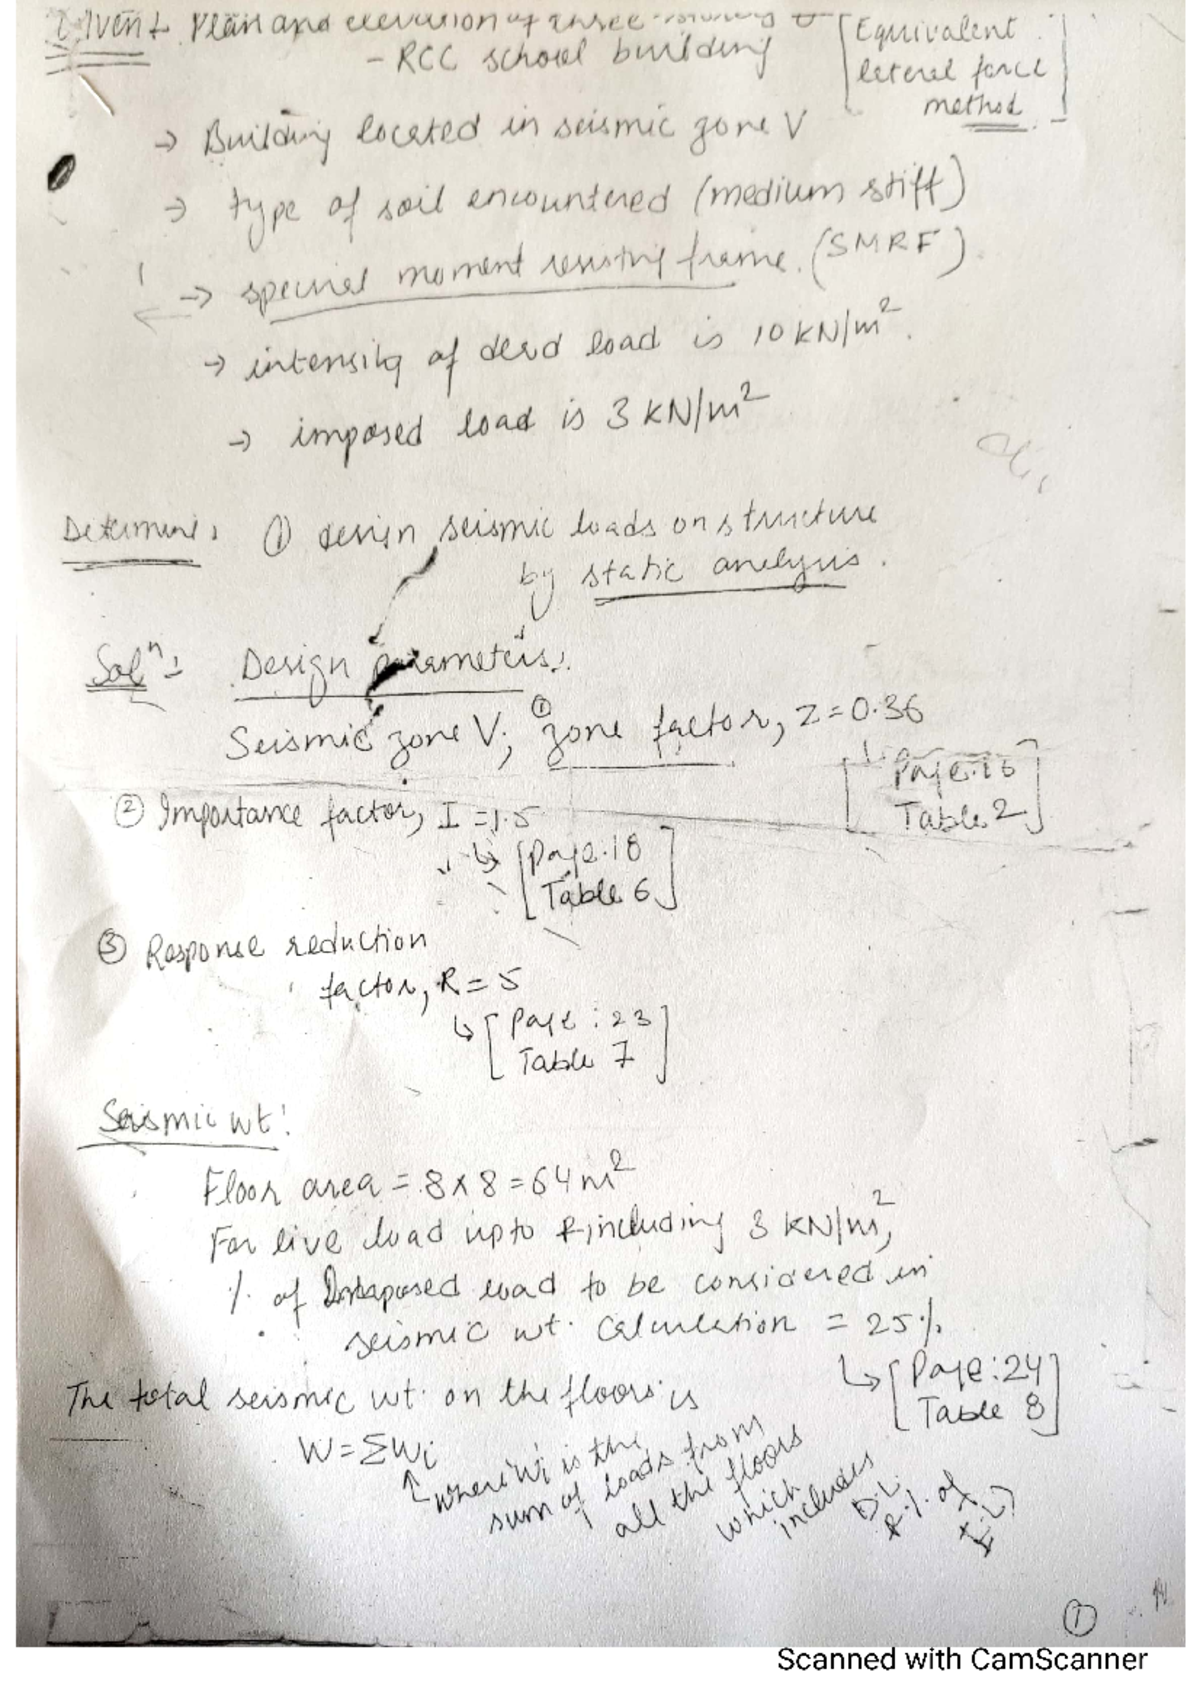 Given: Plan and elevation of three-storey
- RCC school building
[Equivalent
leteral force
method]
→ Building located in seismic zone V
→ type of soil encountered (medium stiff)
→ special moment resisting frame. (SMRF)
→ intensity of dead load is 10 kN/m².
→ imposed load is 3 kN/m²
Determine: ① design seismic loads on structure
by static analysis.
Solⁿ: Design parameters:
Seismic zone V; ① zone factor, Z = 0.36
[Page:16
Table 2]
② Importance factor, I = 1.5
↳ [Page:18
Table 6]
③ Response reduction
factor, R = 5
↳ [Page:23
Table 7]
Seismic wt:
Floor area = 8 x 8 = 64 m²
For live load upto & including 3 kN/m²,
% of Imposed load to be considered in
seismic wt. calculation = 25%
↳ [Page:24
Table 8]
The total seismic wt. on the floors is
W = ΣWi
where Wi is the
sum of loads from
all the floors
which
includes
D.L.
& % of
I.L)
①
Scanned with CamScanner